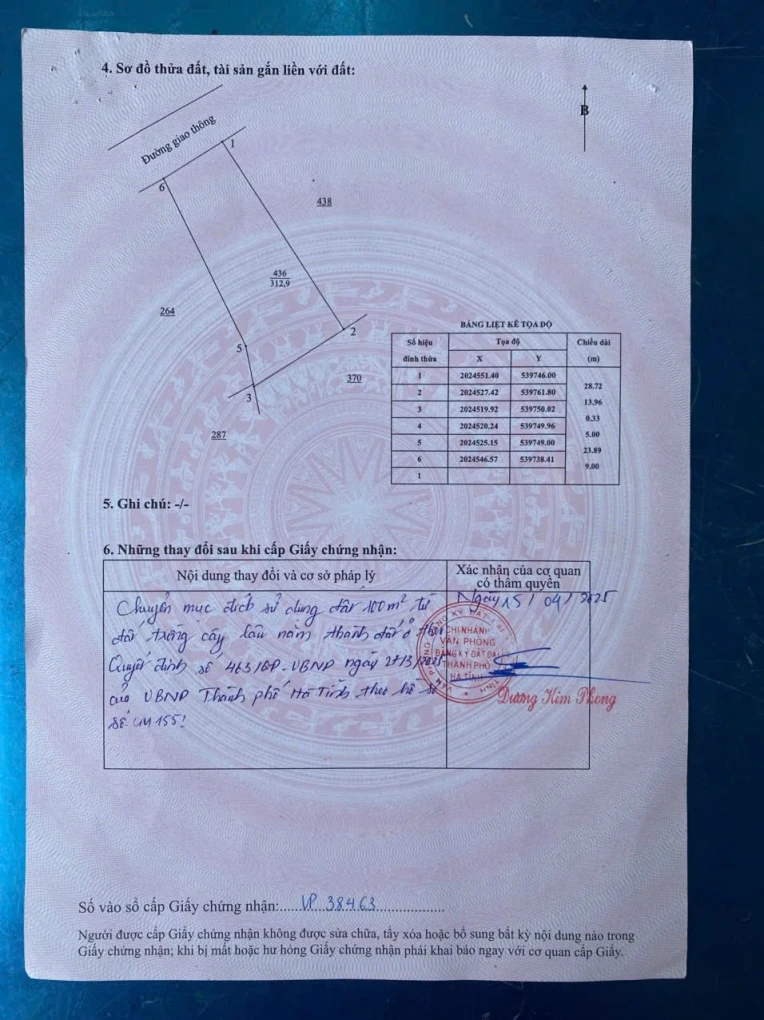 4. Sơ đồ thửa đất, tài sản gắn liền với đất:
B
Đường giao thông
1
6
438
436
312,9
264
2
5
370
3
287
BẢNG LIỆT KÊ TỌA ĐỘ
Số hiệu đỉnh thửa Tọa độ Chiều dài (m)
X Y
1 2024551.40 539746.00
28.72
2 2024527.42 539761.80
13.96
3 2024519.92 539750.02
0.33
4 2024520.24 539749.96
5.00
5 2024525.15 539749.00
23.89
6 2024546.57 539738.41
9.00
1
5. Ghi chú: -/-
6. Những thay đổi sau khi cấp Giấy chứng nhận:
Nội dung thay đổi và cơ sở pháp lý
Xác nhận của cơ quan
có thẩm quyền
Chuyển mục đích sử dụng đất 100m² từ
đất trồng cây lâu năm thành đất ở theo
Quyết định số 463/QĐ-UBND ngày 27/3/2025
của UBND Thành phố Hà Tĩnh theo hồ sơ
số: CM 155!
Ngày 15/04/2025
CHI NHÁNH
VĂN PHÒNG
ĐĂNG KÝ ĐẤT ĐAI
THÀNH PHỐ
HÀ TĨNH
Dương Kim Phong
Số vào sổ cấp Giấy chứng nhận:.....VP 38463.....................
Người được cấp Giấy chứng nhận không được sửa chữa, tẩy xóa hoặc bổ sung bất kỳ nội dung nào trong
Giấy chứng nhận; khi bị mất hoặc hư hỏng Giấy chứng nhận phải khai báo ngay với cơ quan cấp Giấy.